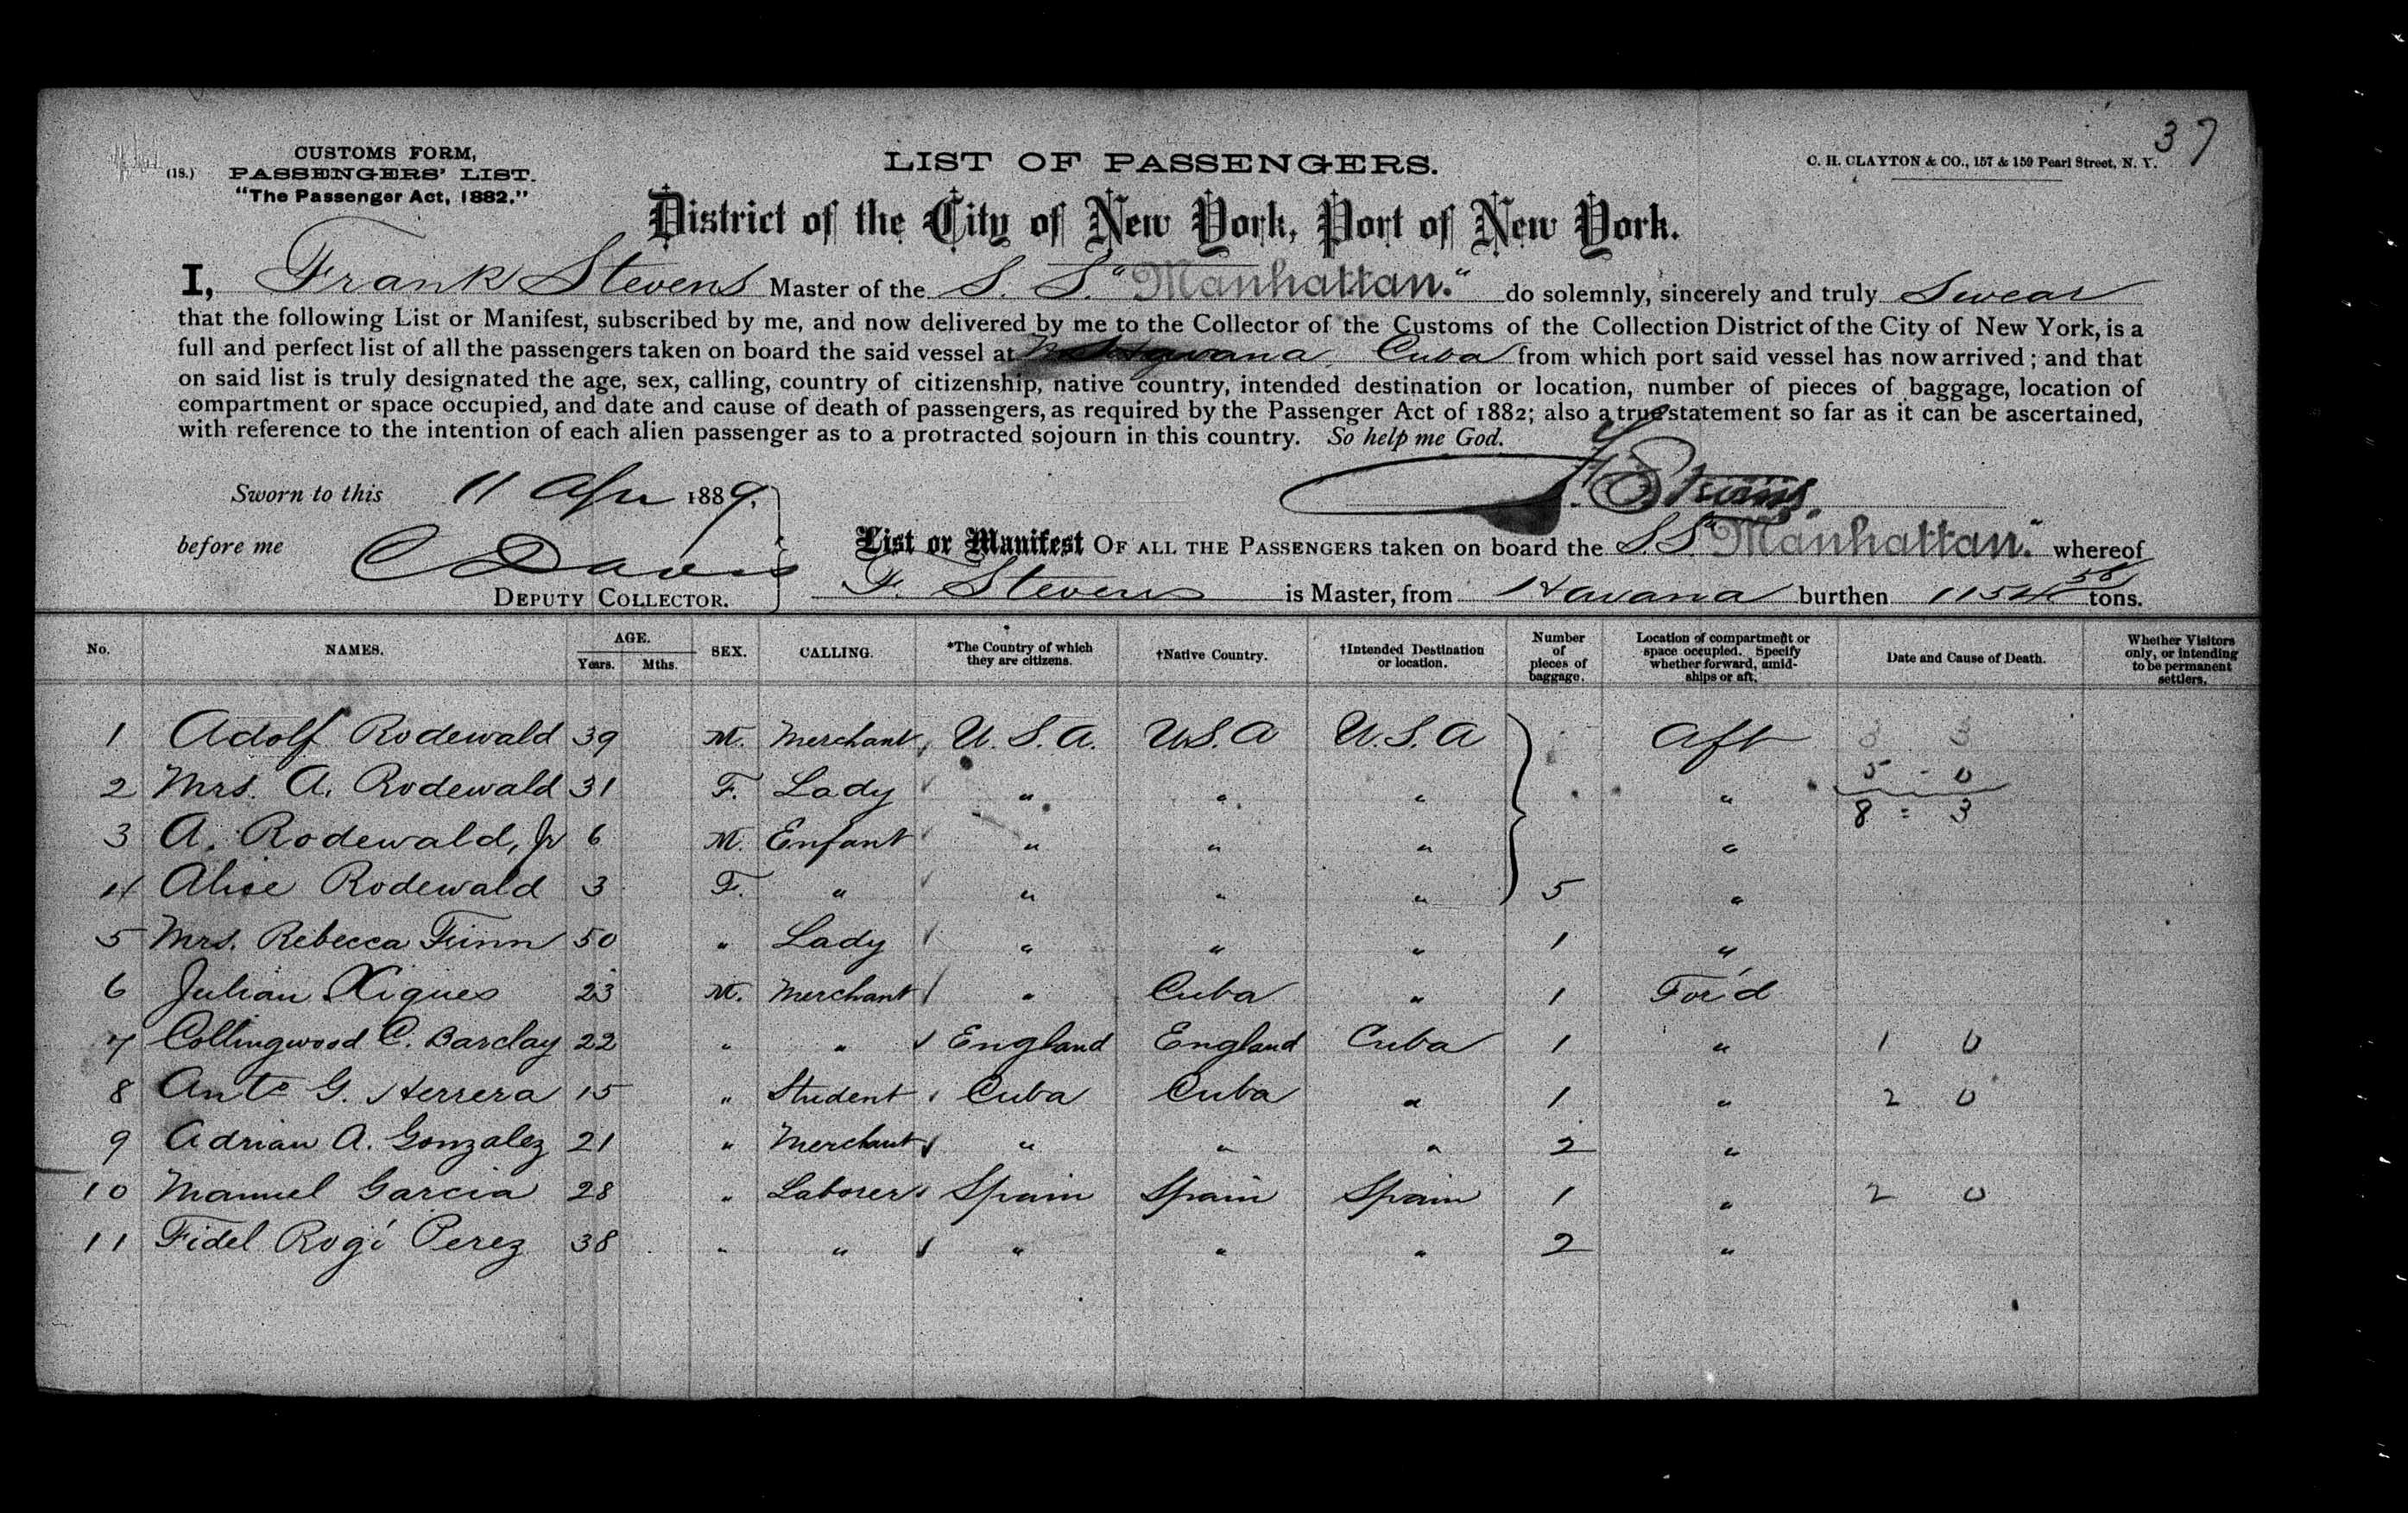 37
CUSTOMS FORM,
(18.) PASSENGERS' LIST.
"The Passenger Act, 1882."
LIST OF PASSENGERS.
C. H. CLAYTON & CO., 157 & 159 Pearl Street, N. Y.
District of the City of New York, Port of New York.
I, Frank Stevens Master of the S. S. "Manhattan." do solemnly, sincerely and truly Swear
that the following List or Manifest, subscribed by me, and now delivered by me to the Collector of the Customs of the Collection District of the City of New York, is a
full and perfect list of all the passengers taken on board the said vessel at Havana, Cuba from which port said vessel has now arrived; and that
on said list is truly designated the age, sex, calling, country of citizenship, native country, intended destination or location, number of pieces of baggage, location of
compartment or space occupied, and date and cause of death of passengers, as required by the Passenger Act of 1882; also a true statement so far as it can be ascertained,
with reference to the intention of each alien passenger as to a protracted sojourn in this country. So help me God.
Sworn to this 11 Apr 1889. F. Stevens.
before me C Davis
DEPUTY COLLECTOR.
List or Manifest OF ALL THE PASSENGERS taken on board the S.S. "Manhattan." whereof
F. Stevens is Master, from Havana burthen 1154 58/ tons.
No. NAMES. AGE. Years. Mths. SEX. CALLING. *The Country of which they are citizens. †Native Country. †Intended Destination or location. Number of pieces of baggage. Location of compartment or space occupied. Specify whether forward, amidships or aft. Date and Cause of Death. Whether Visitors only, or intending to be permanent settlers.
1 Adolf Rodewald 39 M. Merchant U. S. A. U.S. A U. S. A Aft 3 3
2 Mrs. A. Rodewald 31 F. Lady " " " " 5 - 0
8 = 3
3 A. Rodewald, Jr 6 M. Enfant " " " "
4 Alice Rodewald 3 F. " " " " 5 "
5 Mrs. Rebecca Finn 50 " Lady " " " 1 "
6 Julian Xiques 23 M. Merchant " Cuba " 1 For'd
7 Collingwood C. Barclay 22 " " England England Cuba 1 " 1 0
8 Anto G. Herrera 15 " Student Cuba Cuba " 1 " 2 0
9 Adrian A. Gonzalez 21 " Merchant " " " 2 "
10 Manuel Garcia 28 " Laborer Spain Spain Spain 1 " 2 0
11 Fidel Rogi Perez 38 " " " " " 2 "